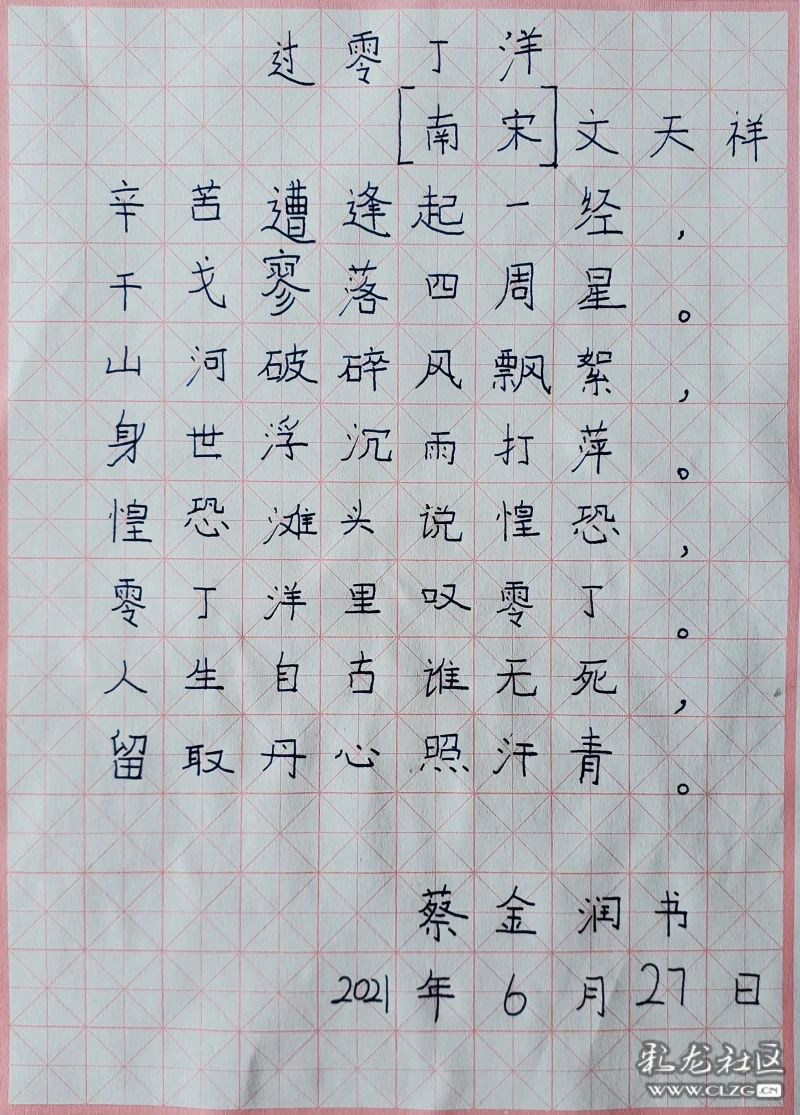 过零丁洋
[南宋]文天祥
辛苦遭逢起一经，
干戈寥落四周星。
山河破碎风飘絮，
身世浮沉雨打萍。
惶恐滩头说惶恐，
零丁洋里叹零丁。
人生自古谁无死，
留取丹心照汗青。
蔡金润书
2021年6月27日
彩龙社区
WWW.CLZG.CN